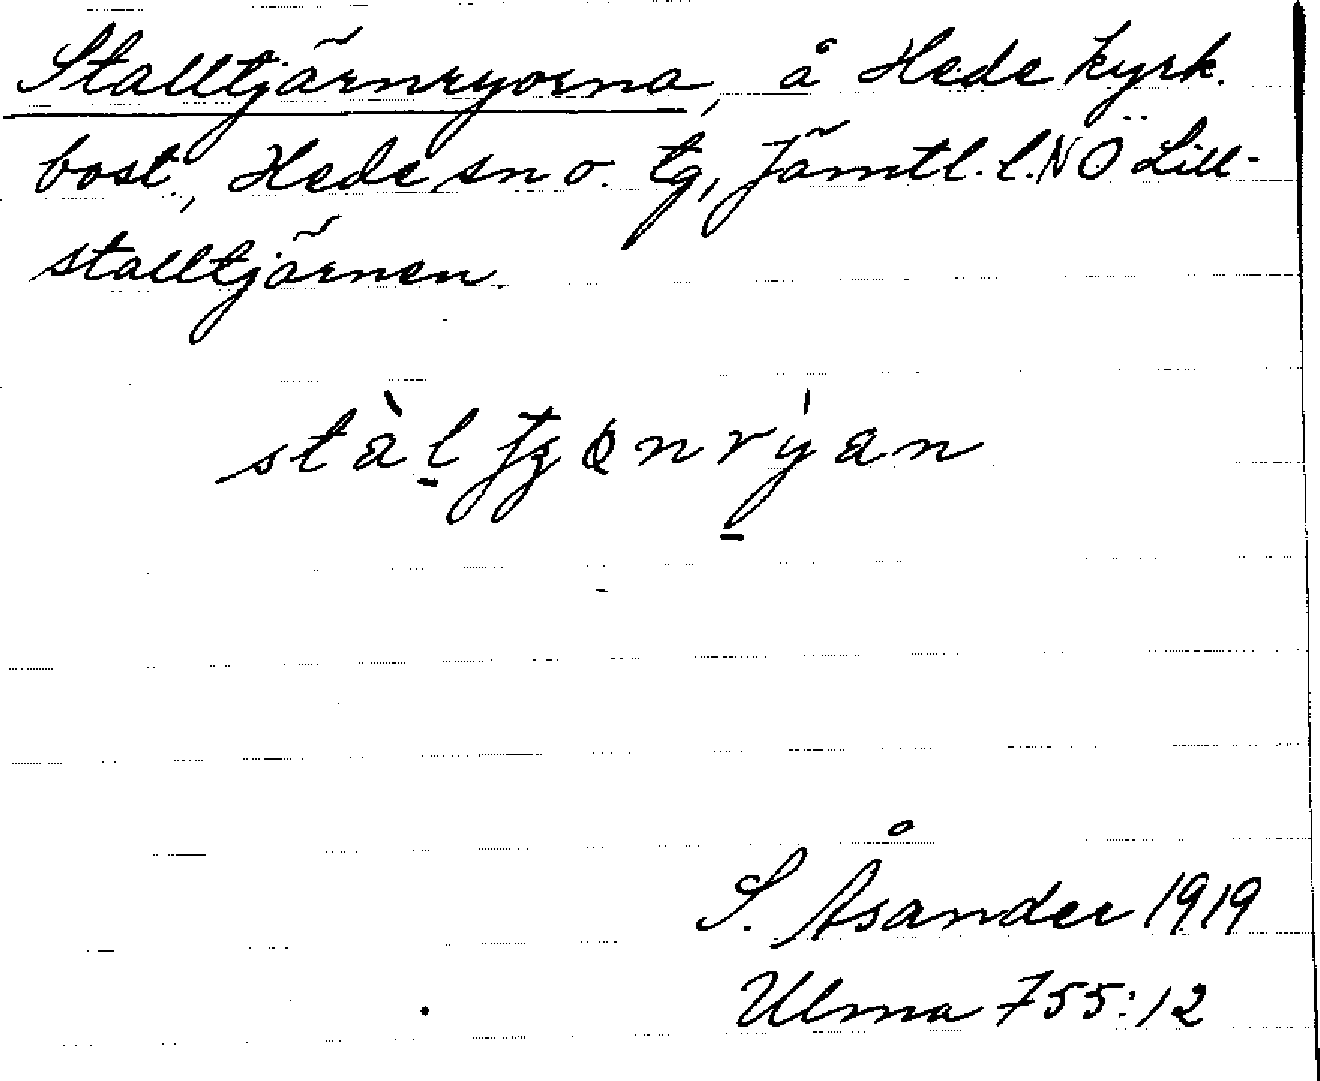 Stalltjärnryorna, å Hede kyrk.
bost., Hede sn o. tg, Jämtl. l. NÖ Lill-
stalltjärnen.
S. Åsander 1919
Ulma 755:12